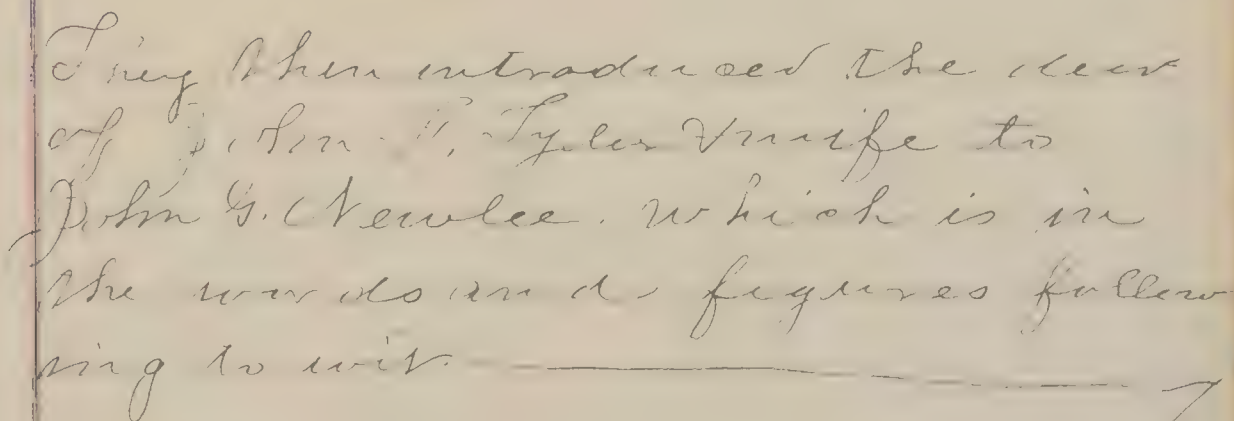 They then introduced the deed
of John P. Tyler & wife to
John G. Newlee. Which is in
the words and figures follow
ing to wit.